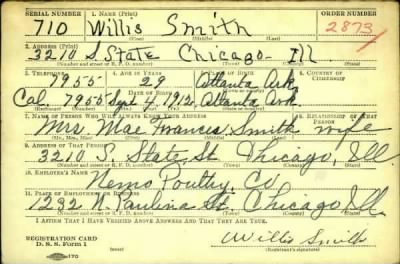 SERIAL NUMBER 1. NAME (Print) ORDER NUMBER
710 Willis Smith 2873
(First) (Middle) (Last)
2. ADDRESS (Print)
3210 S. State Chicago - Ill.
(Number and street or R. F. D. number) (Town) (County) (State)
3. TELEPHONE 4. AGE IN YEARS 5. PLACE OF BIRTH 6. COUNTRY OF CITIZENSHIP
7955 29 Atlanta Ark
DATE OF BIRTH
Cal. 7955 Sept 4, 1912 Atlanta Ark
(Exchange) (Number) (Mo.) (Day) (Yr.) (Town or county) (State or country)
7. NAME OF PERSON WHO WILL ALWAYS KNOW YOUR ADDRESS 8. RELATIONSHIP OF THAT PERSON
Mrs. Mae Frances Smith wife
(Mr., Mrs., Miss) (First) (Middle) (Last)
9. ADDRESS OF THAT PERSON
3210 S. State St. Chicago, Ill.
(Number and street or R. F. D. number) (Town) (County) (State)
10. EMPLOYER'S NAME
Nemo Poultry, Co
11. PLACE OF EMPLOYMENT OR BUSINESS
1232 N. Paulina St. Chicago Ill.
(Number and street or R. F. D. number) (Town) (County) (State)
I AFFIRM THAT I HAVE VERIFIED ABOVE ANSWERS AND THAT THEY ARE TRUE.
REGISTRATION CARD
D. S. S. Form 1
Willis Smith
(Registrant's signature)